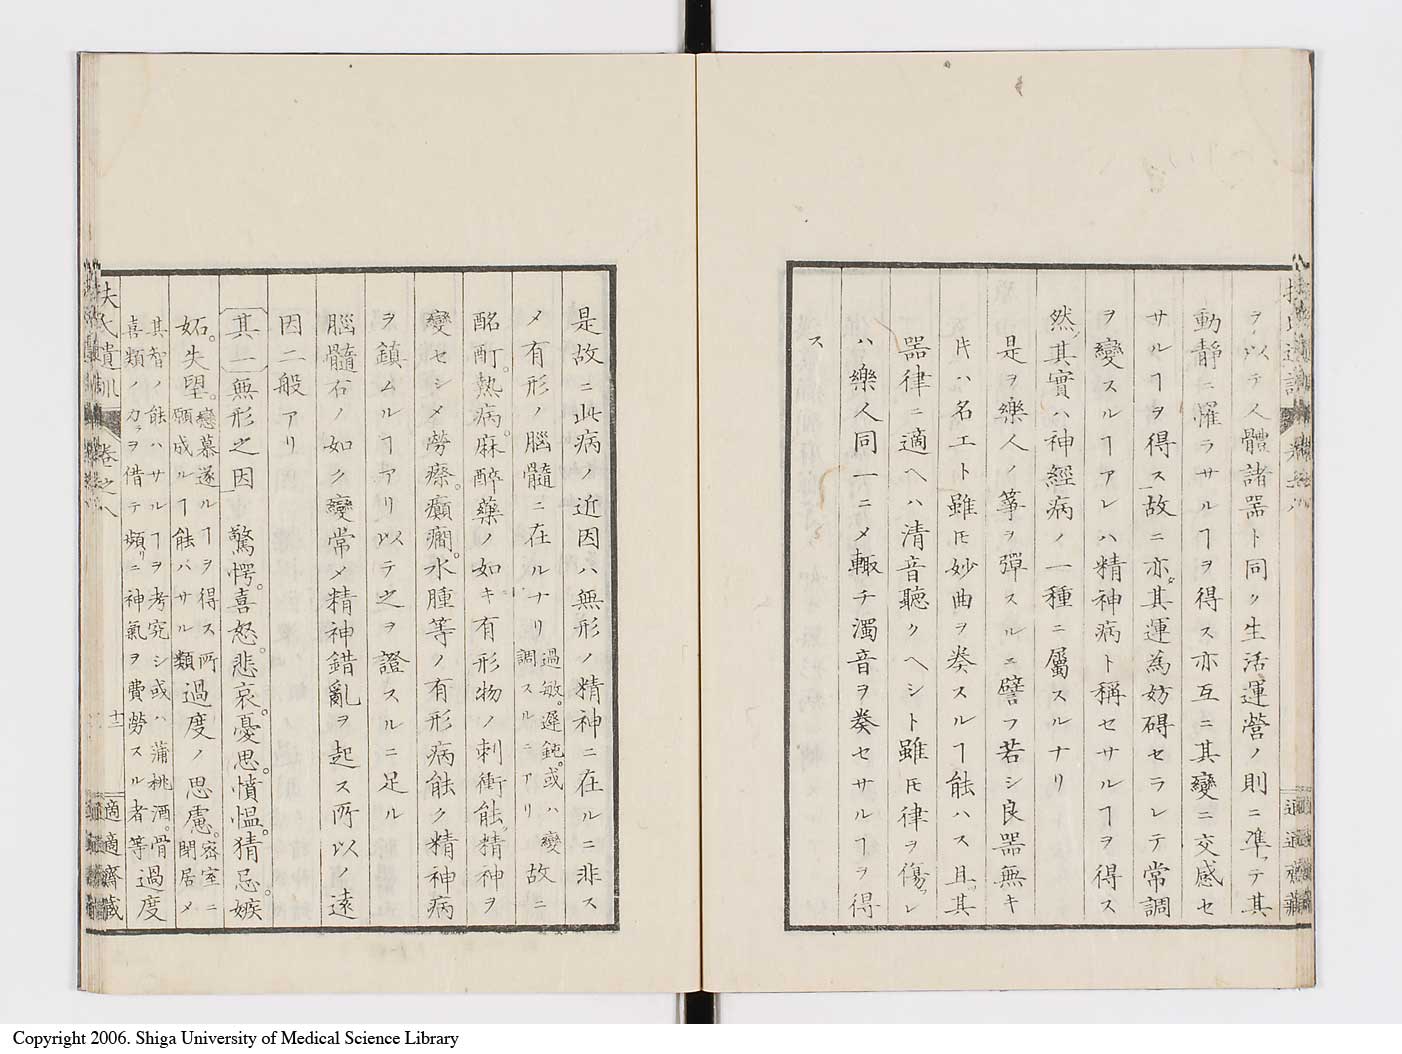 ヲ以テ人體諸器ト同ク生活運營ノ則ニ準テ其
動靜ニ罹ラサルヿヲ得ス亦互ニ其變ニ交感セ
サルヿヲ得ス故ニ亦其運為妨碍セラレテ常調
ヲ變スルヿアレハ精神病ト稱セサルヿヲ得ス
然𪜈其實ハ神經病ノ一種ニ屬スルナリ
是ヲ樂人ノ箏ヲ彈スルニ譬フ若シ良器無キ
𪜈ハ名工ト雖𪜈妙曲ヲ奏スルヿ能ハス且其
器律ニ適ヘハ清音聽クヘシト雖𪜈律ヲ傷レ
ハ樂人同一ニメ輙チ濁音ヲ奏セサルヿヲ得
ス
是故ニ此病ノ近因ハ無形ノ精神ニ在ルニ非ス
メ有形ノ腦髓ニ在ルナリ過敏。遲鈍。或ハ變調スルニアリ故ニ
酩酊。熱病。麻醉藥ノ如キ有形物ノ刺衝能精神ヲ
變セシメ勞瘵。癲癇。水腫等ノ有形病能ク精神病
ヲ鎮ムルヿアリ以テ之ヲ證スルニ足ル
腦髓右ノ如ク變常メ精神錯亂ヲ起ス所以ノ遠
因二般アリ
其一無形之因 驚愕。喜怒。悲哀。憂思。憤慍。猜忌。嫉
妬。失望。戀慕遂ルヿヲ得ス所願成ルヿ能バサル類過度ノ思慮。密室ニ閉居メ
其智ノ能ハサルヿヲ考究シ或ハ蒲桃酒。骨喜類ノ力ヲ借テ頻リニ神氣ヲ費勞スル者等過度
扶氏遺訓 卷之八 十二 適適齋藏